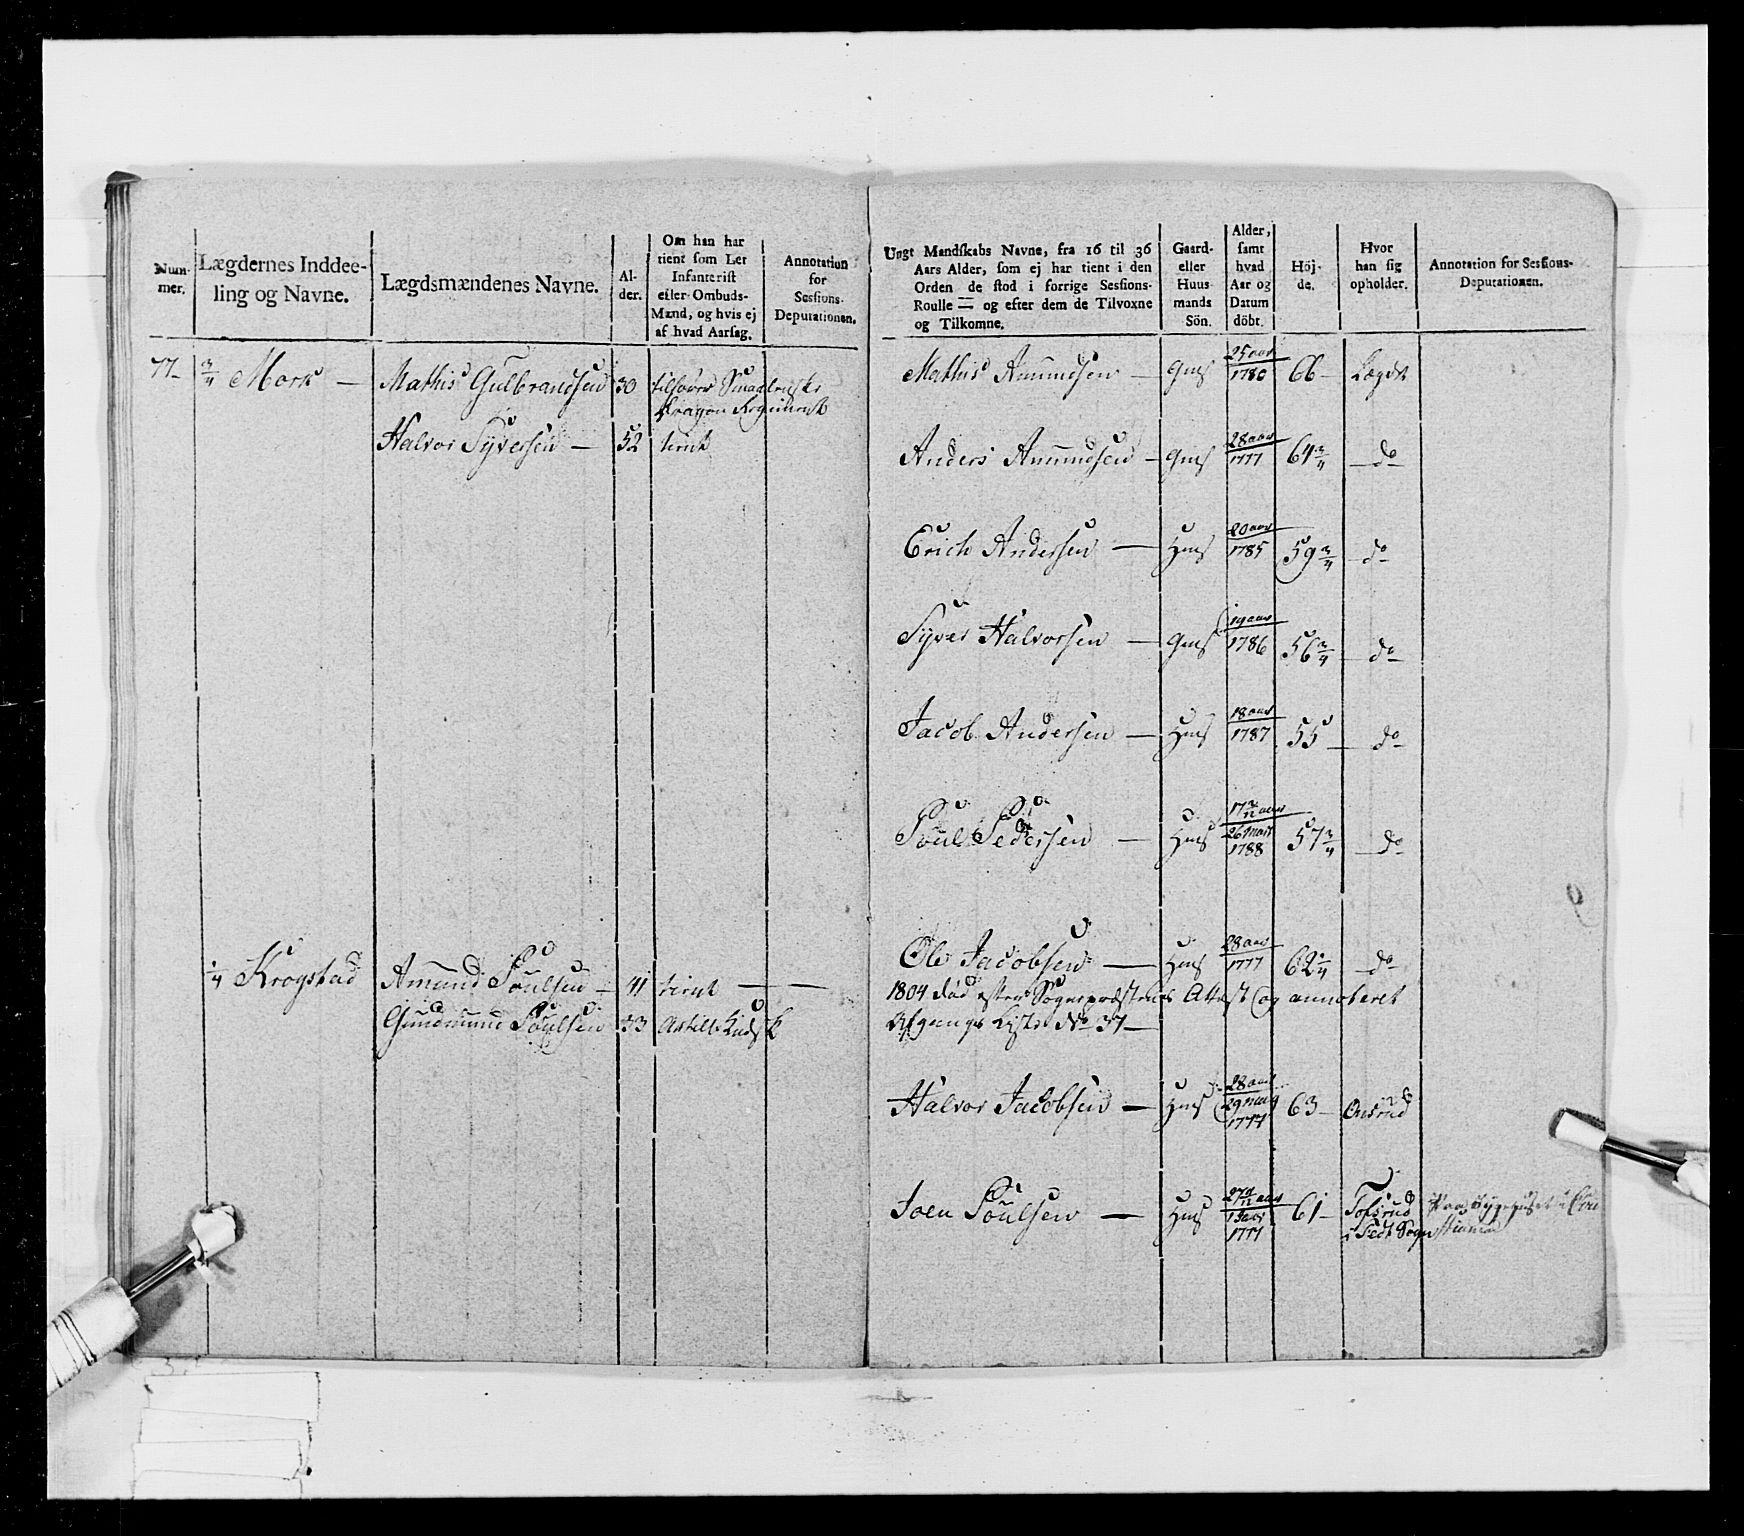 Num-
mer.
Lægdernes Inddee-
ling og Navne.
Lægdsmændenes Navne.
Al-
der.
Om han har
tient som Let
Infanterist
eller Ombuds-
Mand, og hvis ej
af hvad Aarsag.
Annotation
for
Sessions-
Deputationen.
77- 3/4 Mork — Mathis Gulbrandsen 30
Dragon Regiment
Halvor Syversen — 52 tient
1/4 Krogstad Amund Poulsen — 41 tient — —
Gudmund Poulsen 33
Ungt Mandskabs Navne, fra 16 til 36
Aars Alder, som ej har tient i den
Orden de stod i forrige Sessions-
Roulle = og efter dem de Tilvoxne
og Tilkomne.
Gaard-
eller
Huus-
mands
Sön.
Alder,
samt
hvad
Aar og
Datum
döbt.
Höj-
de.
Hvor
han sig
opholder.
Annotation for Sessions-
Deputationen.
Mathis Amundsen — Gms 25 aar 1780 66 - Lægdt
Anders Amundsen - Gms 28 aar 1777 64 3/4 - do
Erich Andersen — Hms 20 aar 1785 59 3/4 - do
Syver Halvorsen — Gms 19 aar 1786 56 3/4 - do
Jacob Andersen — Hms 18 aar 1787 55 - do
Poul Pedersen — Hms 17 3/12 aar 26 Mart 1788 57 3/4 - do
Ole Jacobsen — Hms 28 aar 1777 62 1/4 - do
1804 död efter Sognepræstens Attest og annoteret
Afgangs Liste No 37 —
Halvor Jacobsen — Hms 28 aar 1777 63 -
Joen Poulsen — Hms 1777 61 - Tofsrud